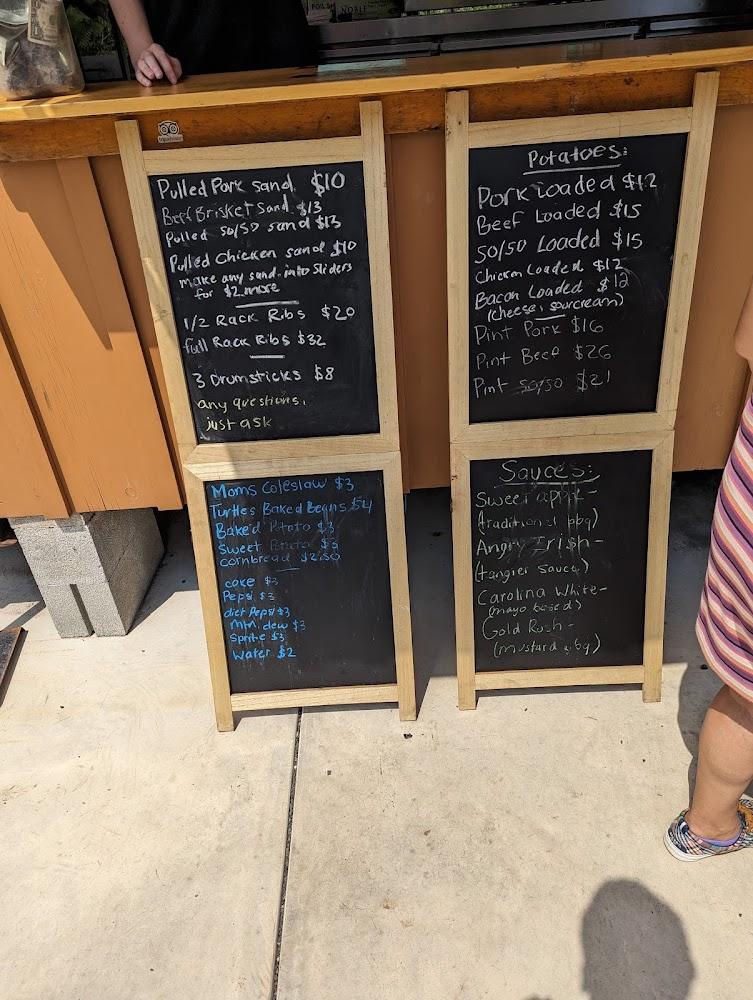 NOBLE
Pulled Pork sand $10
Beef Brisket Sand $13
Pulled 50/50 sand $13
Pulled Chicken sand $10
make any sand. into Sliders
for $2 more
1/2 Rack Ribs $20
full Rack Ribs $32
3 Drumsticks $8
any questions,
just ask
Moms Coleslaw $3
Turtles Baked Beans $4
Baked Potato $3
Sweet Potato $3
cornbread $2.50
coke $3
Pepsi $3
diet Pepsi $3
Mtn. dew $3
Sprite $3
Water $2
Potatoes:
Pork Loaded $12
Beef Loaded $15
50/50 Loaded $15
Chicken Loaded $12
Bacon Loaded $12
(cheese, sourcream)
Pint Pork $16
Pint Beef $26
Pint 50/50 $21
Sauces:
Sweet appl -
(traditional bbq)
Angry Irish -
(tangier sauce)
Carolina White -
(mayo based)
Gold Rush -
(mustard bbq)